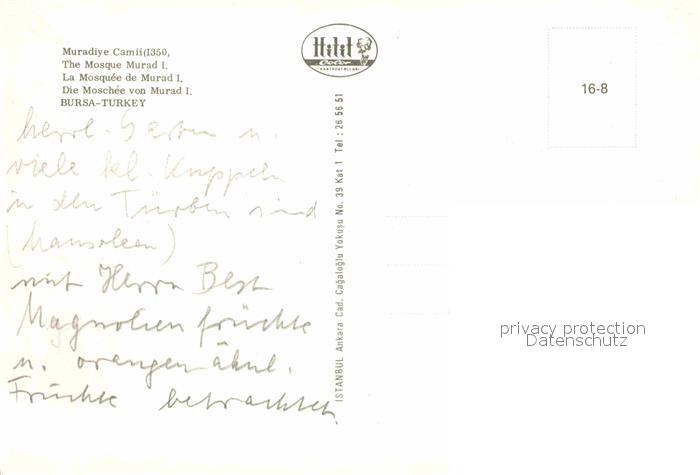 Muradiye Camii(1350,
The Mosque Murad I.
La Mosquée de Murad I.
Die Moschée von Murad I.
BURSA-TURKEY
Hitit
Color
KARTPOSTALLARI
16-8
İSTANBUL Ankara Cad. Cağaloğlu Yokuşu No. 39 Kat 1 Tel : 26 56 51
herrl. Garten u.
viele kl. Kuppeln
in den Türben sind
(Mausoleen)
mit Herrn Best
Magnolien früchte
u. orangenähnl.
Früchte betrachtet.
privacy protection
Datenschutz